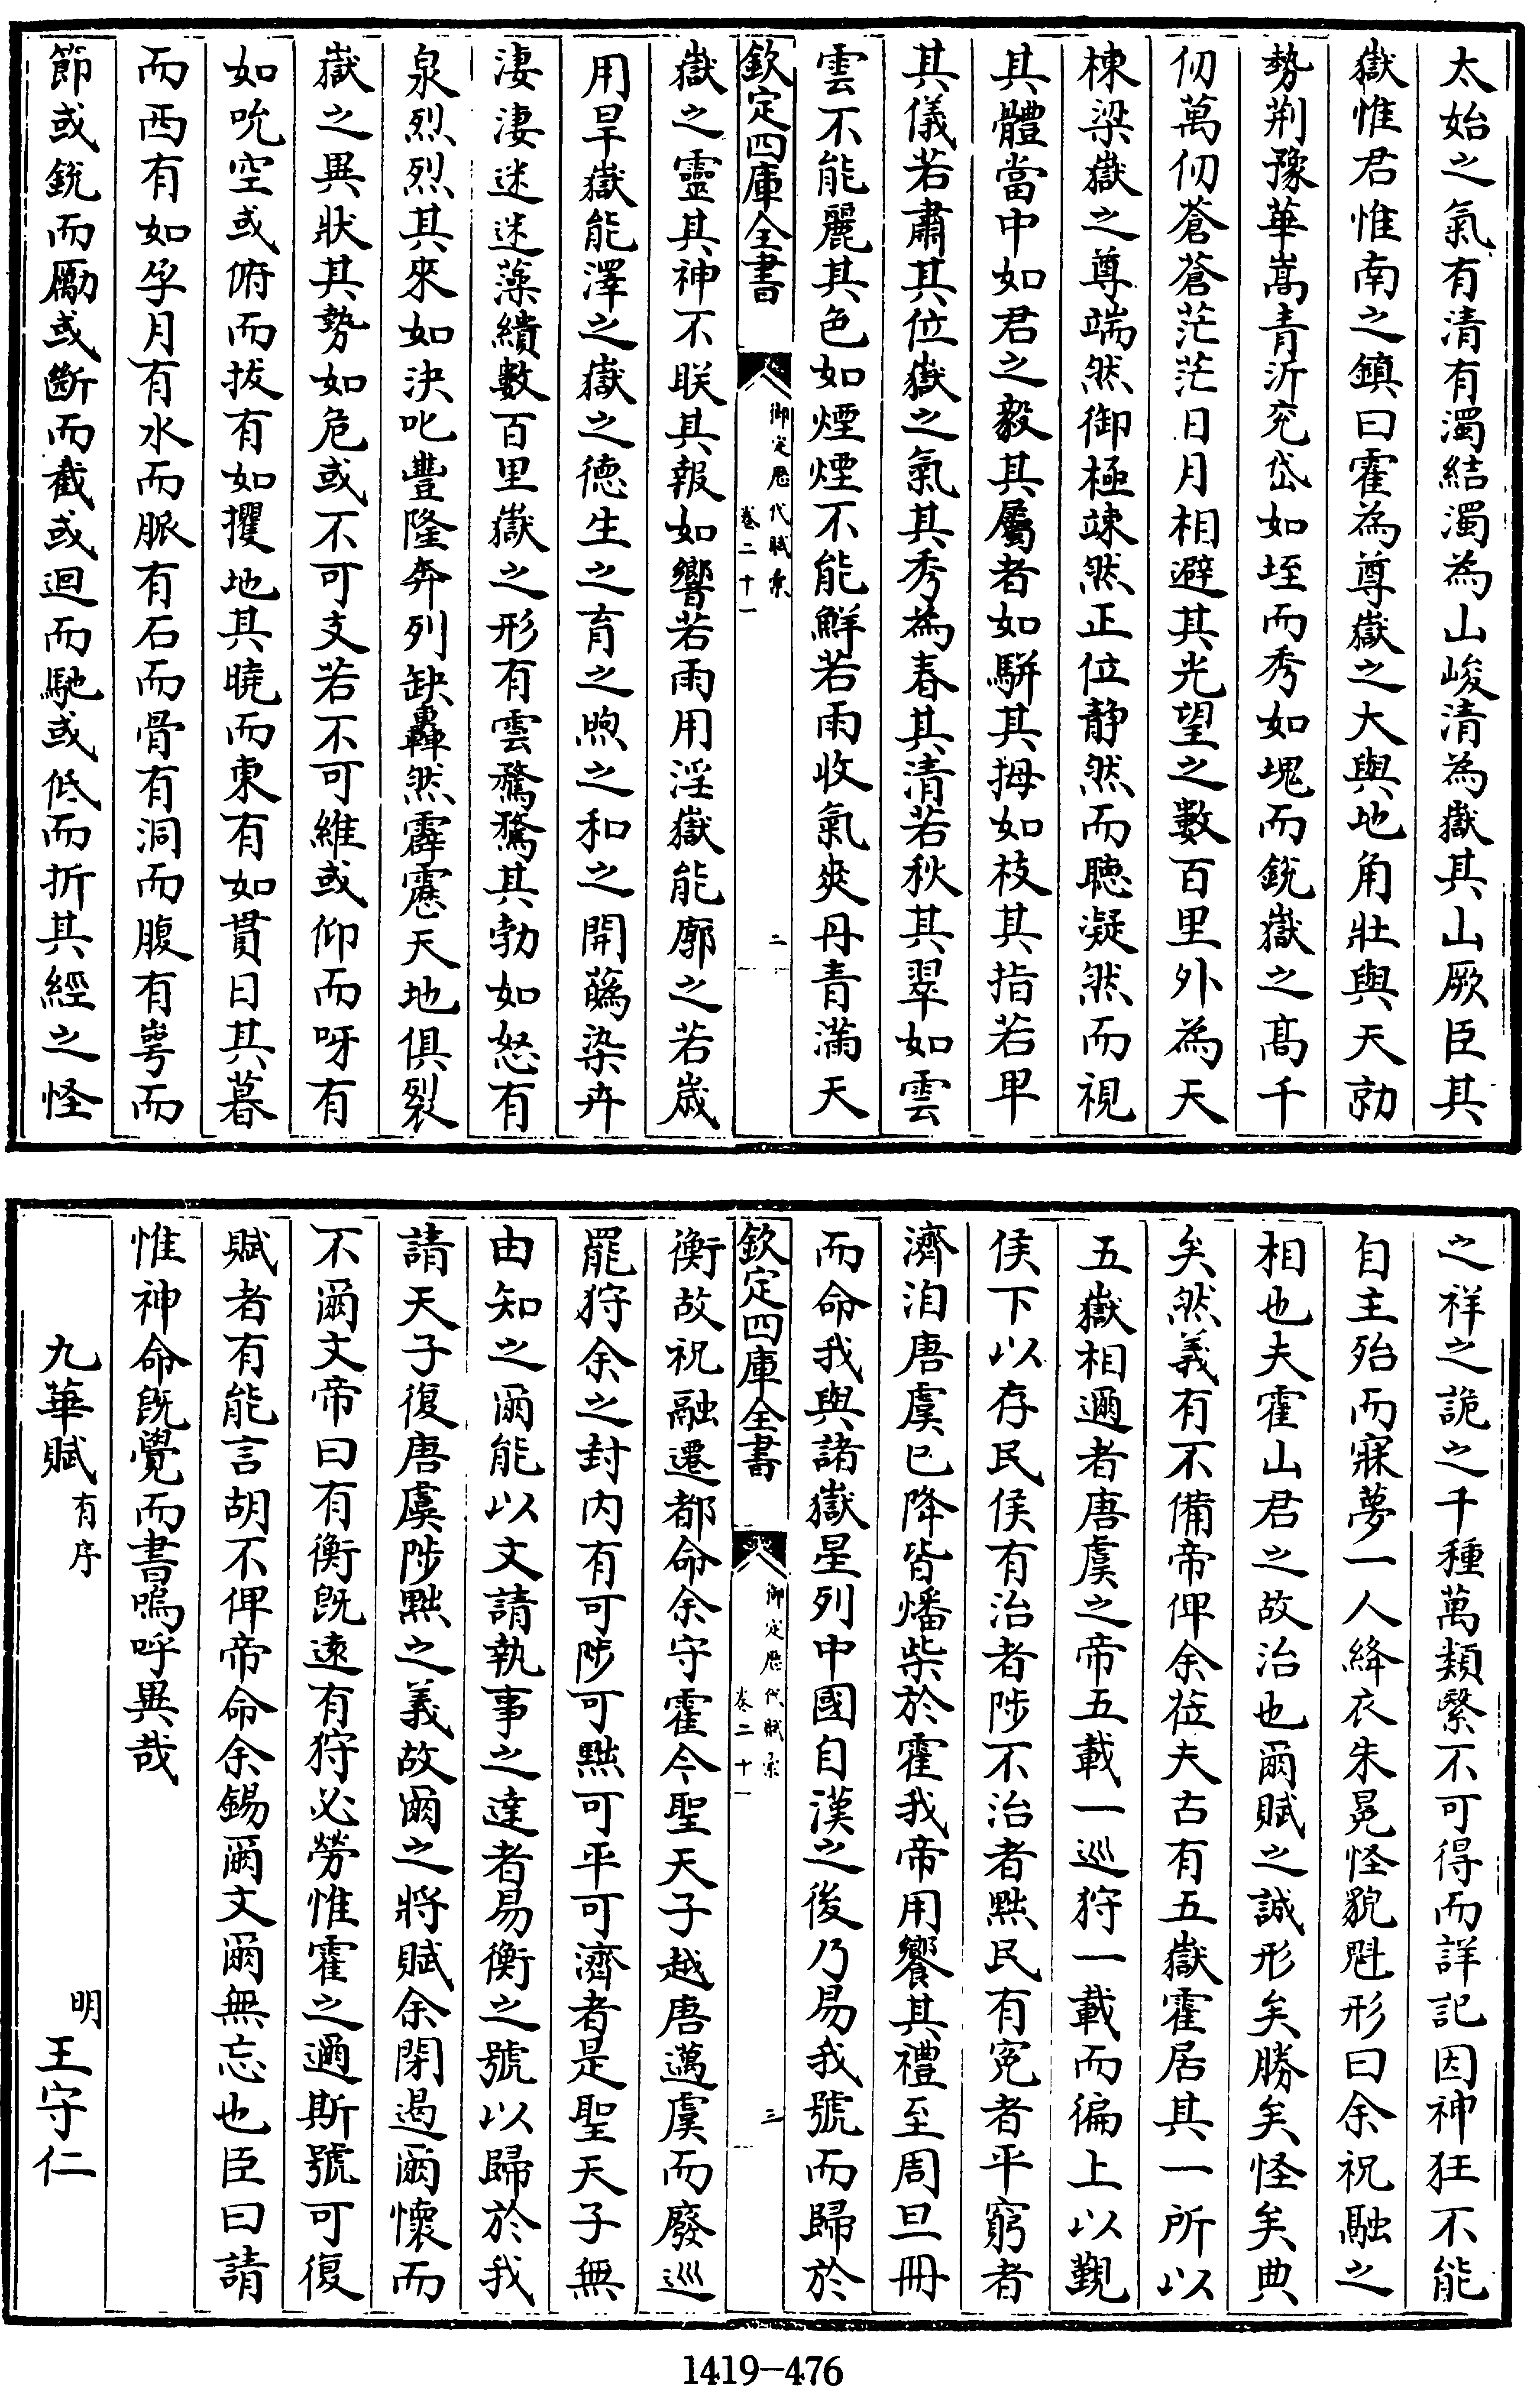 太始之氣有清有濁結濁為山峻清為嶽其山厥臣其
嶽惟君惟南之鎮曰霍為尊嶽之大與地角壯與天勍
勢荆豫華嵩青沂兖岱如垤而秀如塊而銳嶽之髙千
仞萬仞蒼蒼茫茫日月相避其光望之數百里外為天
棟梁嶽之尊端然御極竦然正位静然而聽凝然而視
其體當中如君之毅其屬者如駢其拇如枝其指若卑
其儀若肅其位嶽之氣其秀為春其清若秋其翠如雲
雲不能麗其色如煙煙不能鮮若雨收氣爽丹青滿天
欽定四庫全書
御定歷代賦彙
卷二十一
二
嶽之靈其神不昹其報如響若雨用淫嶽能廓之若歲
用旱嶽能澤之嶽之德生之育之煦之和之開蘤染卉
淒淒迷迷藻繢數百里嶽之形有雲騖騖其勃如怒有
泉烈烈其來如決叱豐隆奔列缺轟然霹靂天地俱裂
嶽之異狀其勢如危或不可支若不可維或仰而呀有
如吮空或俯而拔有如攫地其曉而東有如貫日其暮
而西有如孕月有水而脈有石而骨有洞而腹有崿而
節或銳而勵或斷而截或迴而馳或低而折其經之怪
之祥之詭之千種萬類繄不可得而詳記因神狂不能
自主殆而寐夢一人絳衣朱冕怪貌魁形曰余祝融之
相也夫霍山君之故治也爾賦之誠形矣勝矣怪矣典
矣然義有不備帝俾余莅夫古有五嶽霍居其一所以
五嶽相邇者唐虞之帝五載一巡狩一載而徧上以覲
侯下以存民侯有治者陟不治者黜民有寃者平窮者
濟洎唐虞已降皆燔柴於霍我帝用饗其禮至周旦冊
而命我與諸嶽星列中國自漢之後乃易我號而歸於
欽定四庫全書
御定歷代賦彙
卷二十一
三
衡故祝融遷都命余守霍今聖天子越唐邁虞而廢巡
罷狩余之封内有可陟可黜可平可濟者是聖天子無
由知之爾能以文請執事之達者易衡之號以歸於我
請天子復唐虞陟黜之義故爾之將賦余閉遏爾懷而
不爾文帝曰有衡旣遠有狩必勞惟霍之邇斯號可復
賦者有能言胡不俾帝命余錫爾文爾無忘也臣曰請
惟神命旣覺而書嗚呼異哉
九華賦有序
明王守仁
1419-476